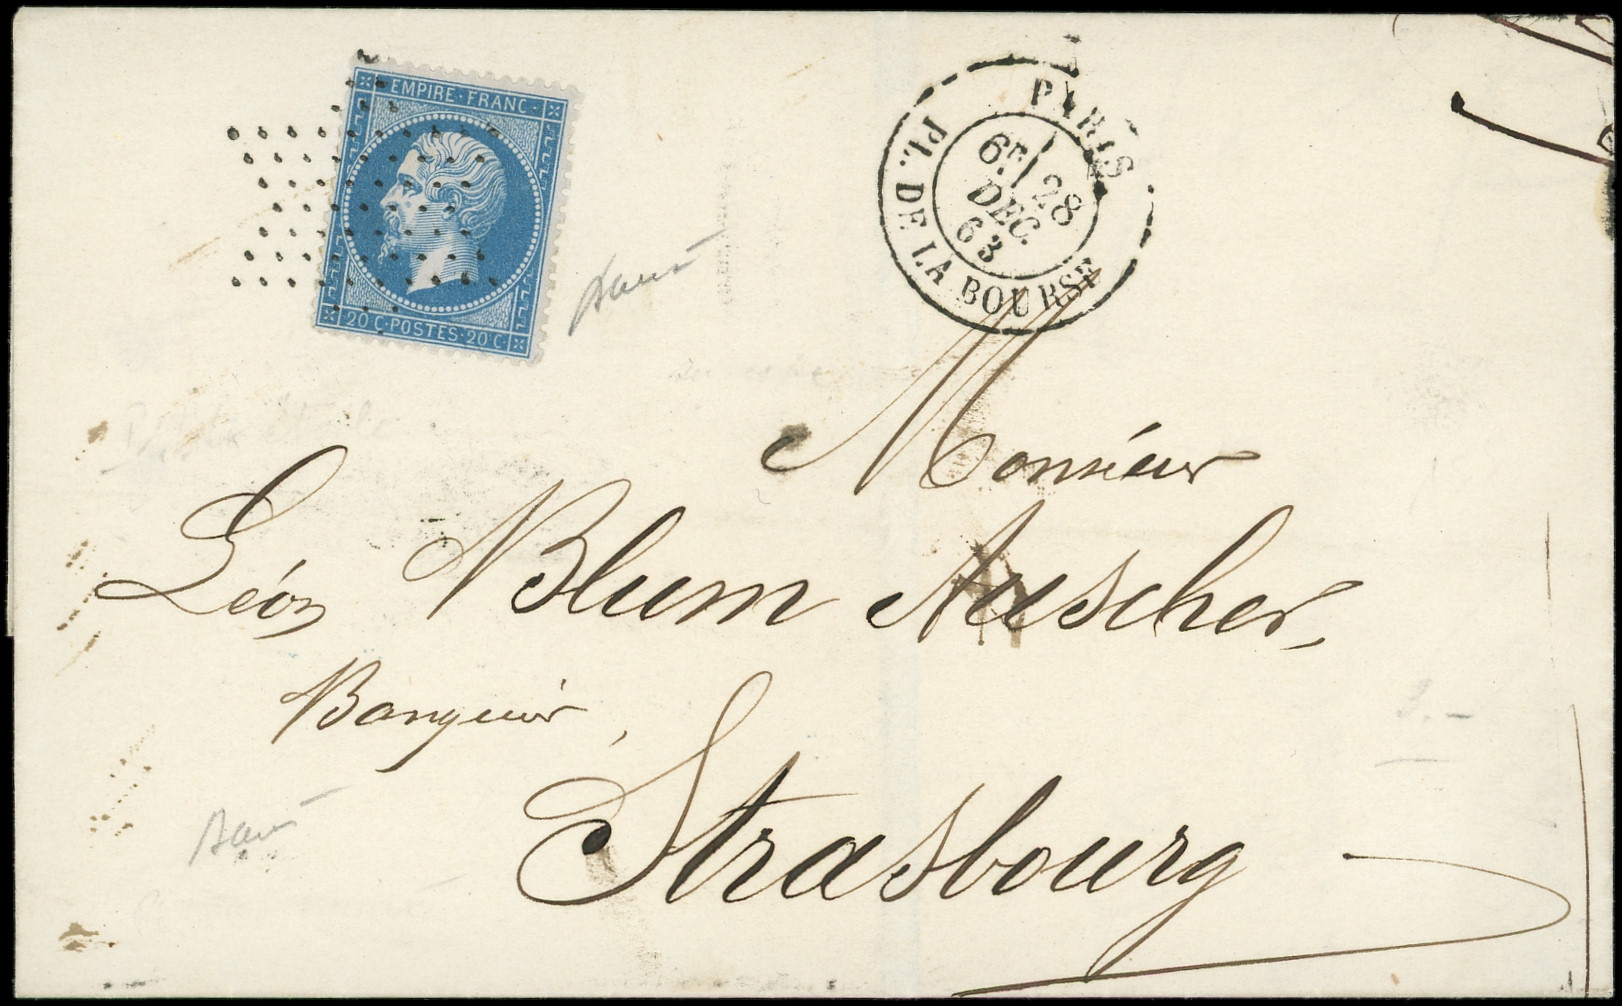 EMPIRE·FRANC·
20 C·POSTES·20 C·
PARIS
6E 28
DEC.
63
PL. DE LA BOURSE
Monsieur
Léon Blum Auscher,
Banquier,
Strasbourg